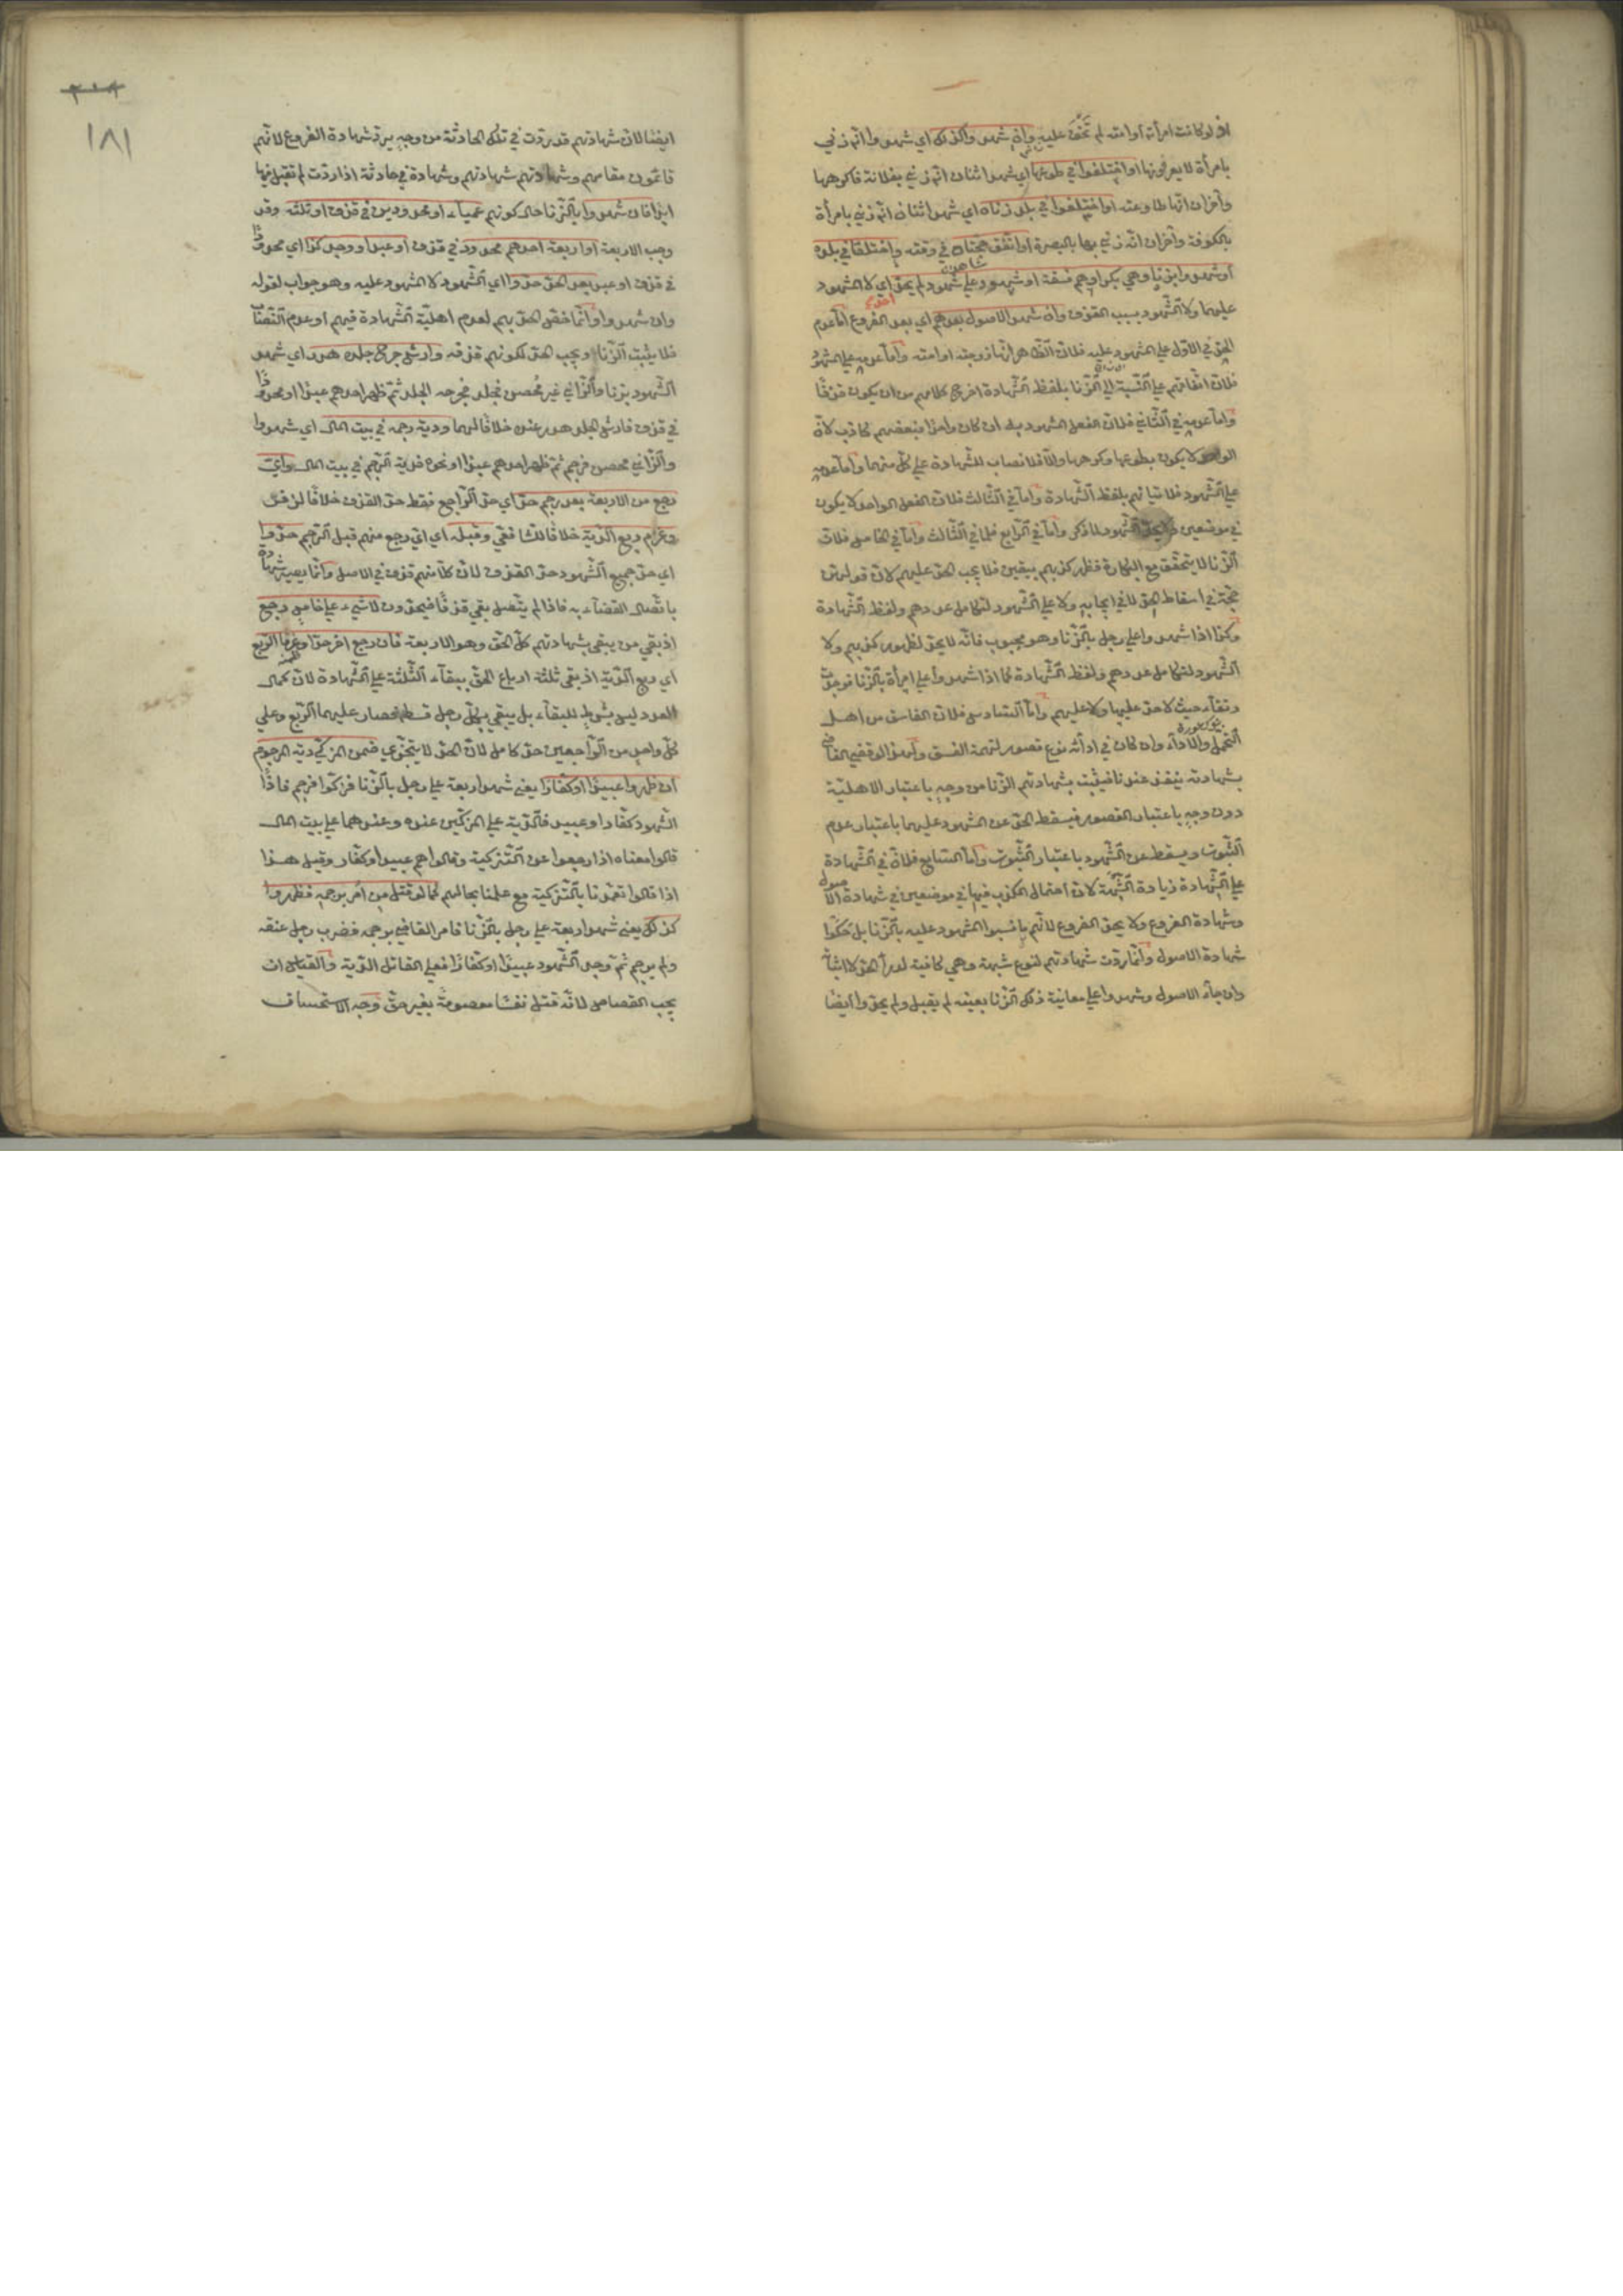 اذ لو كانت امرأته او امته لم تخف عليه وان شهدوا كذلك اي شهدوا انه زني
بامرأة لا يعرفونها او اختلفوا في طوعها اي شهد اثنان انه زني بفلانة فاكرهها
وآخران انها طاوعته او اختلفوا في بلد زناه اي شهد اثنان انه زني بامرأة
بالكوفة وآخران انه زني بها بالبصرة او اتفق حجتاه في وقته واختلفا في بلده
او شهدوا بزنا وهي بكر او هم فسقة او شهود علي شهود لم يحد اي لا الشهود
عليهما ولا الشهود بسبب القذف وان شهد الاصول بعدهم اي بعد الفروع اما عدم
الحد في الاول علي المشهود عليه فلان الظاهر انها زوجته او امته واما عدمه علي الشهود
فلان اتفاقهم علي النسبة الي الزنا بلفظ الشهادة اخرج كلامهم من ان يكون قذفا
واما عدمه في الثاني فلان الفعل المشهود به ان كان واحدا فبعضهم كاذب لان
الواحد لا يكون بطوعها وكرهها والا فلا نصاب للشهادة علي كل منهما واما عدمه
علي الشهود فلاتيانهم بلفظ الشهادة واما في الثالث فلان الفعل الواحد لا يكون
في موضعين ولا يحد الشهود لما ذكر واما في الرابع فلما في الثالث واما في الخامس فلان
الزنا لا يتحقق مع البكارة فظهر كذبهم بيقين فلا يجب الحد عليهم لان قولهن
حجة في اسقاط الحد لا في ايجابه ولا علي الشهود لتكامل عددهم ولفظ الشهادة
وكذا اذا شهدوا علي رجل بالزنا وهو مجبوب فانه لا يحد لظهور كذبهم ولا
الشهود لتكامل عددهم ولفظ الشهادة كما اذا شهدوا علي امرأة بالزنا فوجدت
رتقاء حيث لا حد عليها ولا عليهم واما السادس فلان الفاسق من اهل
التحمل والاداء وان كان في ادائه نوع قصور لتهمة الفسق ولهذا لو قضي القاضي
بشهادته ينفذ عندنا فيثبت بشهادتهم الزنا من وجه باعتبار الاهلية
دون وجه باعتبار القصور فيسقط الحد عن المشهود عليهما باعتبار عدم
الثبوت ويسقط عن الشهود باعتبار الثبوت واما السابع فلان في الشهادة
علي الشهادة زيادة الشبهة لان احتمال الكذب فيها في موضعين في شهادة الاصول
وشهادة الفروع ولا يحد الفروع لانهم ما نسبوا المشهود عليه بالزنا بل حكوا
شهادة الاصول وانما ردت شهادتهم لنوع شبهة وهي كافية لدرأ الحد لا اثباته
وان جاء الاصول وشهدوا علي معاينة ذلك الزنا بعينه لم يقبل ولم يحدوا ايضا
١٨١
ايضا لان شهادتهم قد ردت في تلك الحادثة من وجه برد شهادة الفروع لانهم
قائمون مقامهم وشهادتهم شهادتهم وشهادة في حادثة اذا ردت لم تقبل فيها
ابدا فان شهدوا بالزنا حال كونهم عميا او محدودين في قذف او ثلثة وقد
وجب الاربعة او اربعة احدهم محدود في قذف او عبد او وجد كذا اي محدودا
في قذف او عبد بعد الحد حدوا اي الشهود لا المشهود عليه وهو جواب لقوله
وان شهدوا وانما خص الحد بهم لعدم اهلية الشهادة فيهم او عدم النصاب
فلا يثبت الزنا ويجب الحد لكونهم قذفه وارش جرح جلده هدر اي شهد
الشهود بزنا والزاني غير محصن فجلد فجرحه الجلد ثم ظهر احدهم عبدا او محدودا
في قذف فارش الجلد هدر عنده خلافا لهما ودية رجمه في بيت المال اي شهدوا
والزاني محصن فرجم ثم ظهر احدهم عبدا او نحوه فدية الرجم في بيت المال واي
رجع من الاربعة بعد رجم حد اي حد الراجع فقط حد القذف خلافا لزفر
وغرم ربع الدية خلافا للشافعي وقبله اي اي رجع منهم قبل الرجم حدوا
اي حد جميع الشهود حد القذف لان كلامهم قذف في الاصل وانما يصير شهادة
باتصال القضاء به فاذا لم يتصل بقي قذفا فيحدون لا شيء علي خامس رجع
اذ بقي من يبقي بشهادتهم كل الحد وهو الاربعة فان رجع اخر حدا وغرما الربع
اي ربع الدية اذ بقي ثلثة ارباع الحد ببقاء الثلثة علي الشهادة لان كمال
العدد ليس بشرط للبقاء بل يبقي بكل رجل قسطه فصار عليهما الربع وعلي
كل واحد من الراجعين حد كامل لان الحد لا يتجزي ضمن المزكي دية المرجوم
ان ظهروا عبيدا او كفارا يعني شهد اربعة علي رجل بالزنا فزكوا فرجم فاذا
الشهود كفار او عبيد فالدية علي المزكين عنده وعندهما علي بيت المال
قالوا معناه اذا رجعوا عن التزكية وقالوا هم عبيد او كفار وقيل هذا
اذا قالوا تعمدنا بالتزكية مع علمنا بحالهم كما لو قتل من امر برجمه فظهروا
كذلك يعني شهد اربعة علي رجل بالزنا فامر القاضي برجمه فضرب رجل عنقه
ولم يرجم ثم وجد الشهود عبيدا او كفارا فعلي القاتل الدية والقياس ان
يجب القصاص لانه قتل نفسا معصومة بغير حق وجه الاستحسان